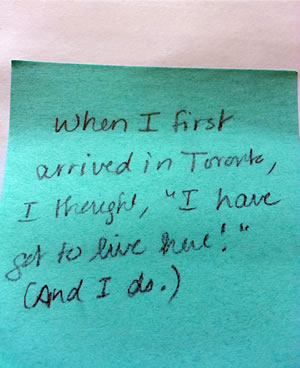 When I first
arrived in Toronto,
I thought, "I have
got to live here!"
(And I do.)